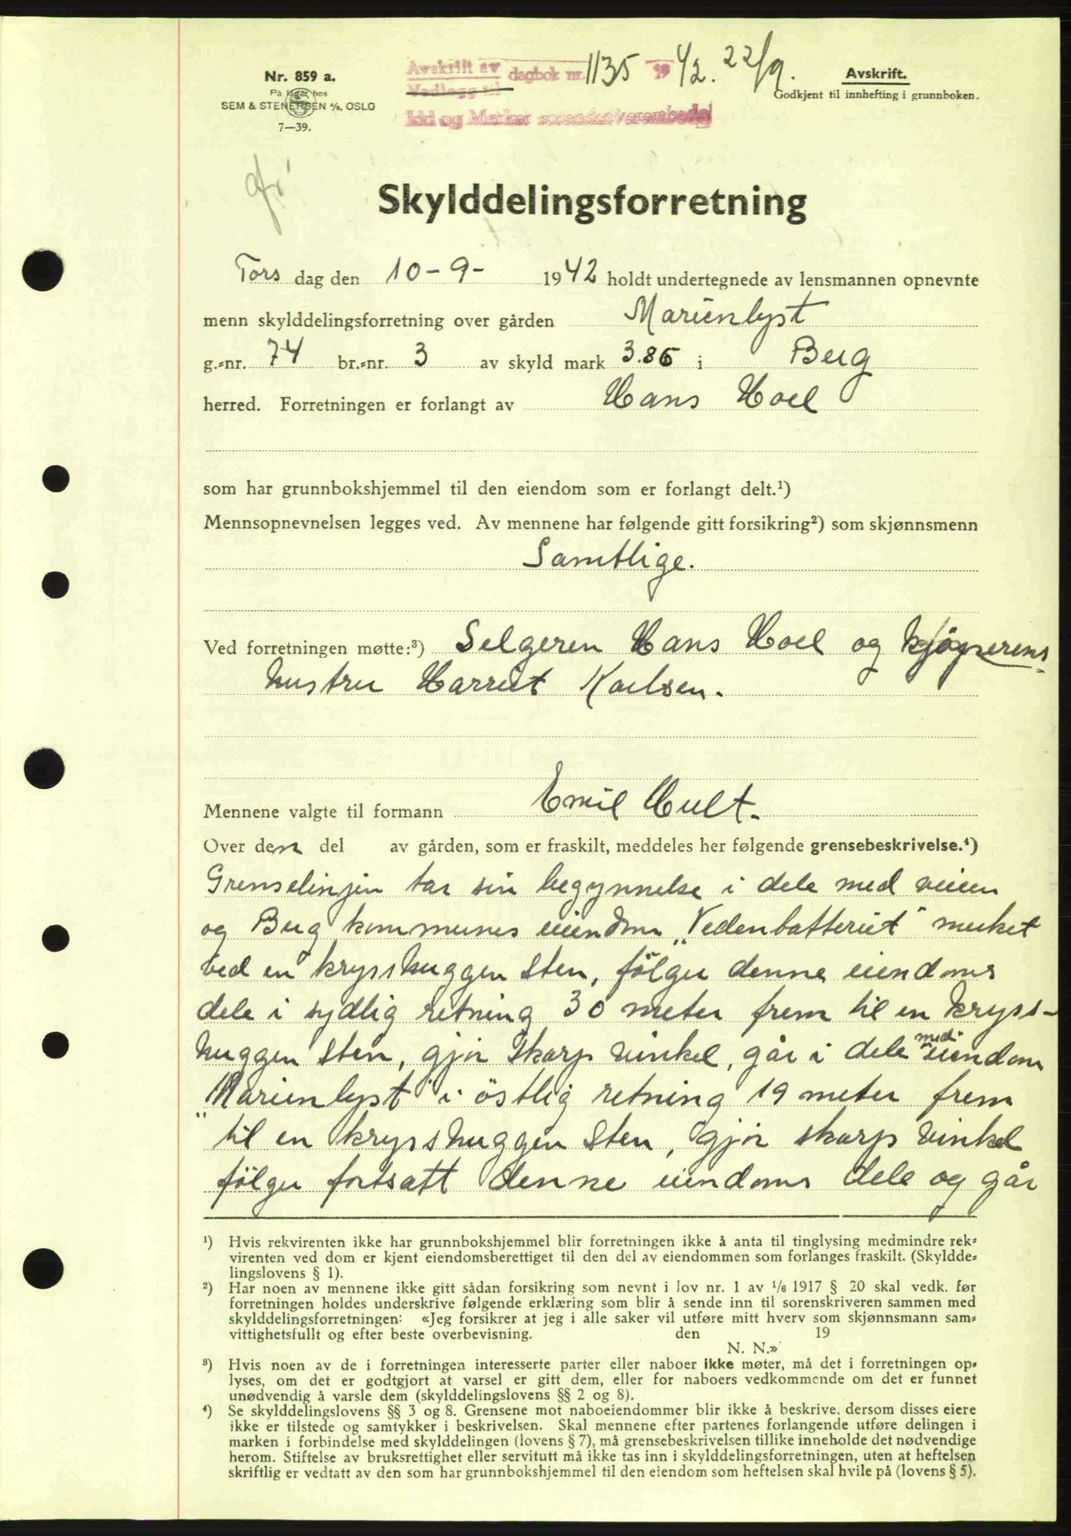 Nr. 859 a.
På lager hos
SEM & STENERSEN A/S, OSLO
7—39.
Avskrift av
Vedlegg til
dagbok nr. 1135 1942. 22/9.
Idd og Marker sorenskriverembede
Avskrift.
Godkjent til innhefting i grunnboken.
Skylddelingsforretning
Tors dag den 10-9- 1942 holdt undertegnede av lensmannen opnevnte
menn skylddelingsforretning over gården Marienlyst
g.-nr. 74 br.-nr. 3 av skyld mark 3.86 i Berg
herred. Forretningen er forlangt av Hans Hoel
som har grunnbokshjemmel til den eiendom som er forlangt delt.¹)
Mennsopnevnelsen legges ved. Av mennene har følgende gitt forsikring²) som skjønnsmenn
Samtlige.
Ved forretningen møtte:³) Selgeren Hans Hoel og kjøperens
hustru Harriet Karlsen.
Mennene valgte til formann Emil Hult.
Over den del av gården, som er fraskilt, meddeles her følgende grensebeskrivelse.⁴)
Grenselinjen tar sin begynnelse i dele med veien
og Berg kommunes eiendom „Vedenbatteriet" merket
ved en krysshuggen Sten, følger denne eiendoms
dele i sydlig retning 30 meter frem til en kryss-
huggen Sten, gjør skarp vinkel, går i dele med eiendom
"Marienlyst" i østlig retning 19 meter frem
til en krysshuggen Sten, gjør skarp vinkel
følger fortsatt denne eiendoms dele og går
¹) Hvis rekvirenten ikke har grunnbokshjemmel blir forretningen ikke å anta til tinglysing medmindre rek-
virenten ved dom er kjent eiendomsberettiget til den del av eiendommen som forlanges fraskilt. (Skyldde-
lingslovens § 1).
²) Har noen av mennene ikke gitt sådan forsikring som nevnt i lov nr. 1 av 1/6 1917 § 20 skal vedk. før
forretningen holdes underskrive følgende erklæring som blir å sende inn til sorenskriveren sammen med
skylddelingsforretningen: «Jeg forsikrer at jeg i alle saker vil utføre mitt hverv som skjønnsmann sam-
vittighetsfullt og efter beste overbevisning. den 19
N. N.»
³) Hvis noen av de i forretningen interesserte parter eller naboer ikke møter, må det i forretningen op-
lyses, om det er godtgjort at varsel er gitt dem, eller for naboers vedkommende om det er funnet
unødvendig å varsle dem (skylddelingslovens §§ 2 og 8).
⁴) Se skylddelingslovens §§ 3 og 8. Grensene mot naboeiendommer blir ikke å beskrive, dersom disses eiere
ikke er tilstede og samtykker i beskrivelsen. Skal mennene efter partenes forlangende utføre delingen i
marken i forbindelse med skylddelingen (lovens § 7), må grensebeskrivelsen tillike inneholde det nødvendige
herom. Stiftelse av bruksrettighet eller servitutt må ikke tas inn i skylddelingsforretningen, uten at heftelsen
skriftlig er vedtatt av den som har grunnbokshjemmel til den eiendom som heftelsen skal hvile på (lovens § 5).